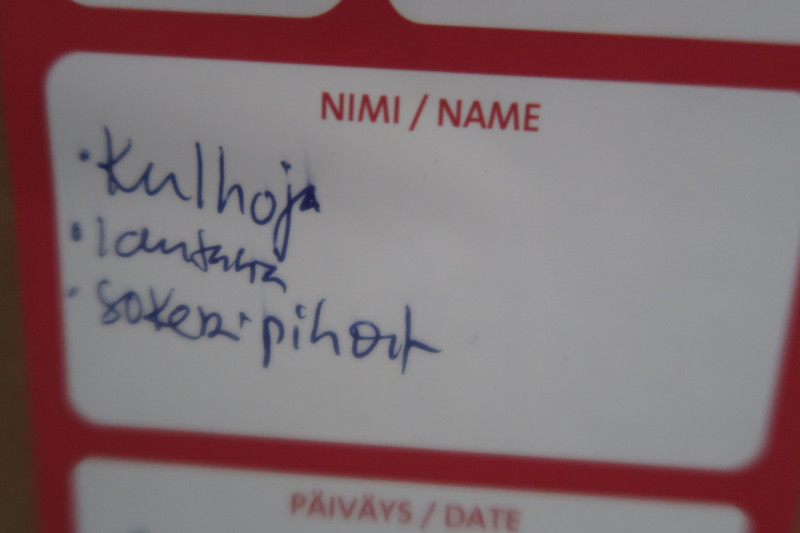 NIMI / NAME
• Kulhoja
• lautasia
• sokeripihdit
PÄIVÄYS / DATE